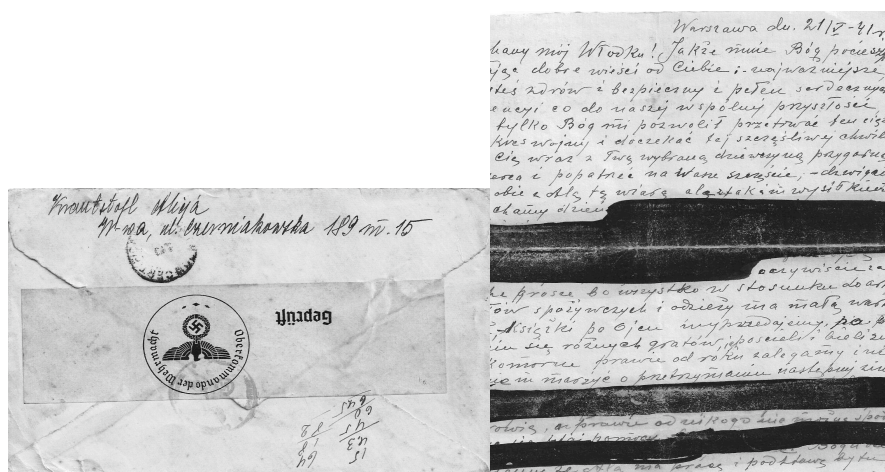 Alija
W-wa, ul. Czerniakowska 189 m. 15
Geprüft
Oberkommando der Wehrmacht
15
43
45
18
82
60
645
64
Warszawa dn. 21/V-41 r
hany mój Włodku! Jakże mnie Bóg pociesz
jąc dobre wieści od Ciebie i najważniejsze,
teś zdrów i bezpieczny i pełen serdecznych
encyi co do naszej wspólnej przyszłości
tylko Bóg mi pozwolił przetrwać ten cięż
kres wojny i doczekać tej szczęśliwej chwili
Cię wraz z Twą wybraną dziewczyną przygarnę
erca i popatrzeć na Wasze szczęście, -dźwigam
obie z Alą tą wiarą
oczywiście za
prosze bo wszystko w stosunku do ar
ów spożywczych i odzieży ma małą war
Książki po Ojcu wyprzedajemy,
się różnych gratów, pościeli i bieliz
komorne prawie od roku zalegamy i nie
marzyć o przetrzymaniu następnej zim
a prawie od nikogo nie można
ma pracę i podstawę bytu